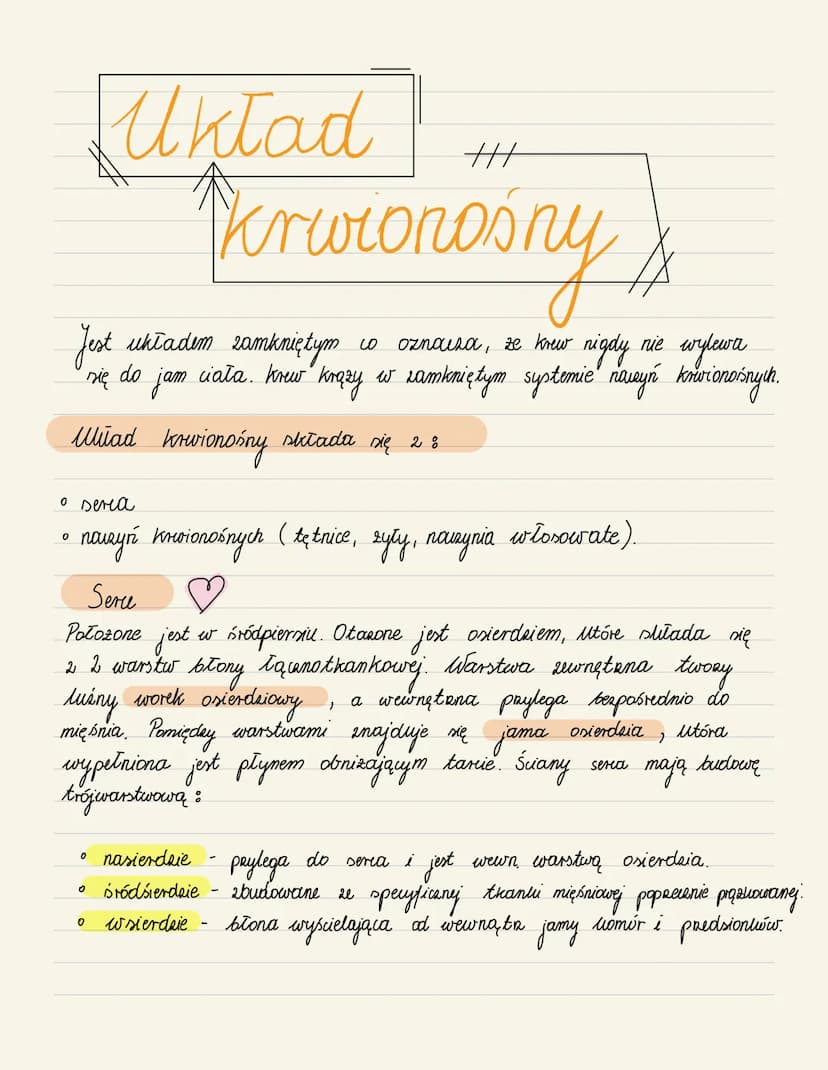 Układ
krwionośny
Jest układem zamkniętym co oznacza, że krew nigdy nie wylewa
się do jam ciała. krew krąży w zamkniętym systemie naczyń krwionośnych.
Układ krwionośny składa się z :
° serca
° naczyń krwionośnych ( tętnice, żyły, naczynia włosowate).
Serce
Położone jest w śródpiersiu. Otoczone jest osierdziem, które składa się
z 2 warstw błony łącznotkankowej. Warstwa zewnętrzna tworzy
luźny worek osierdziowy , a wewnętrzna przylega bezpośrednio do
mięśnia. Pomiędzy warstwami znajduje się jama osierdzia , która
wypełniona jest płynem obniżającym tarcie. Ściany serca mają budowę
trójwarstwową :
° nasierdzie - przylega do serca i jest wewn. warstwą osierdzia.
° śródsierdzie - zbudowane ze specyficznej tkanki mięśniowej poprzecznie prążkowanej.
° wsierdzie - błona wyścielająca od wewnątrz jamy komór i przedsionków.